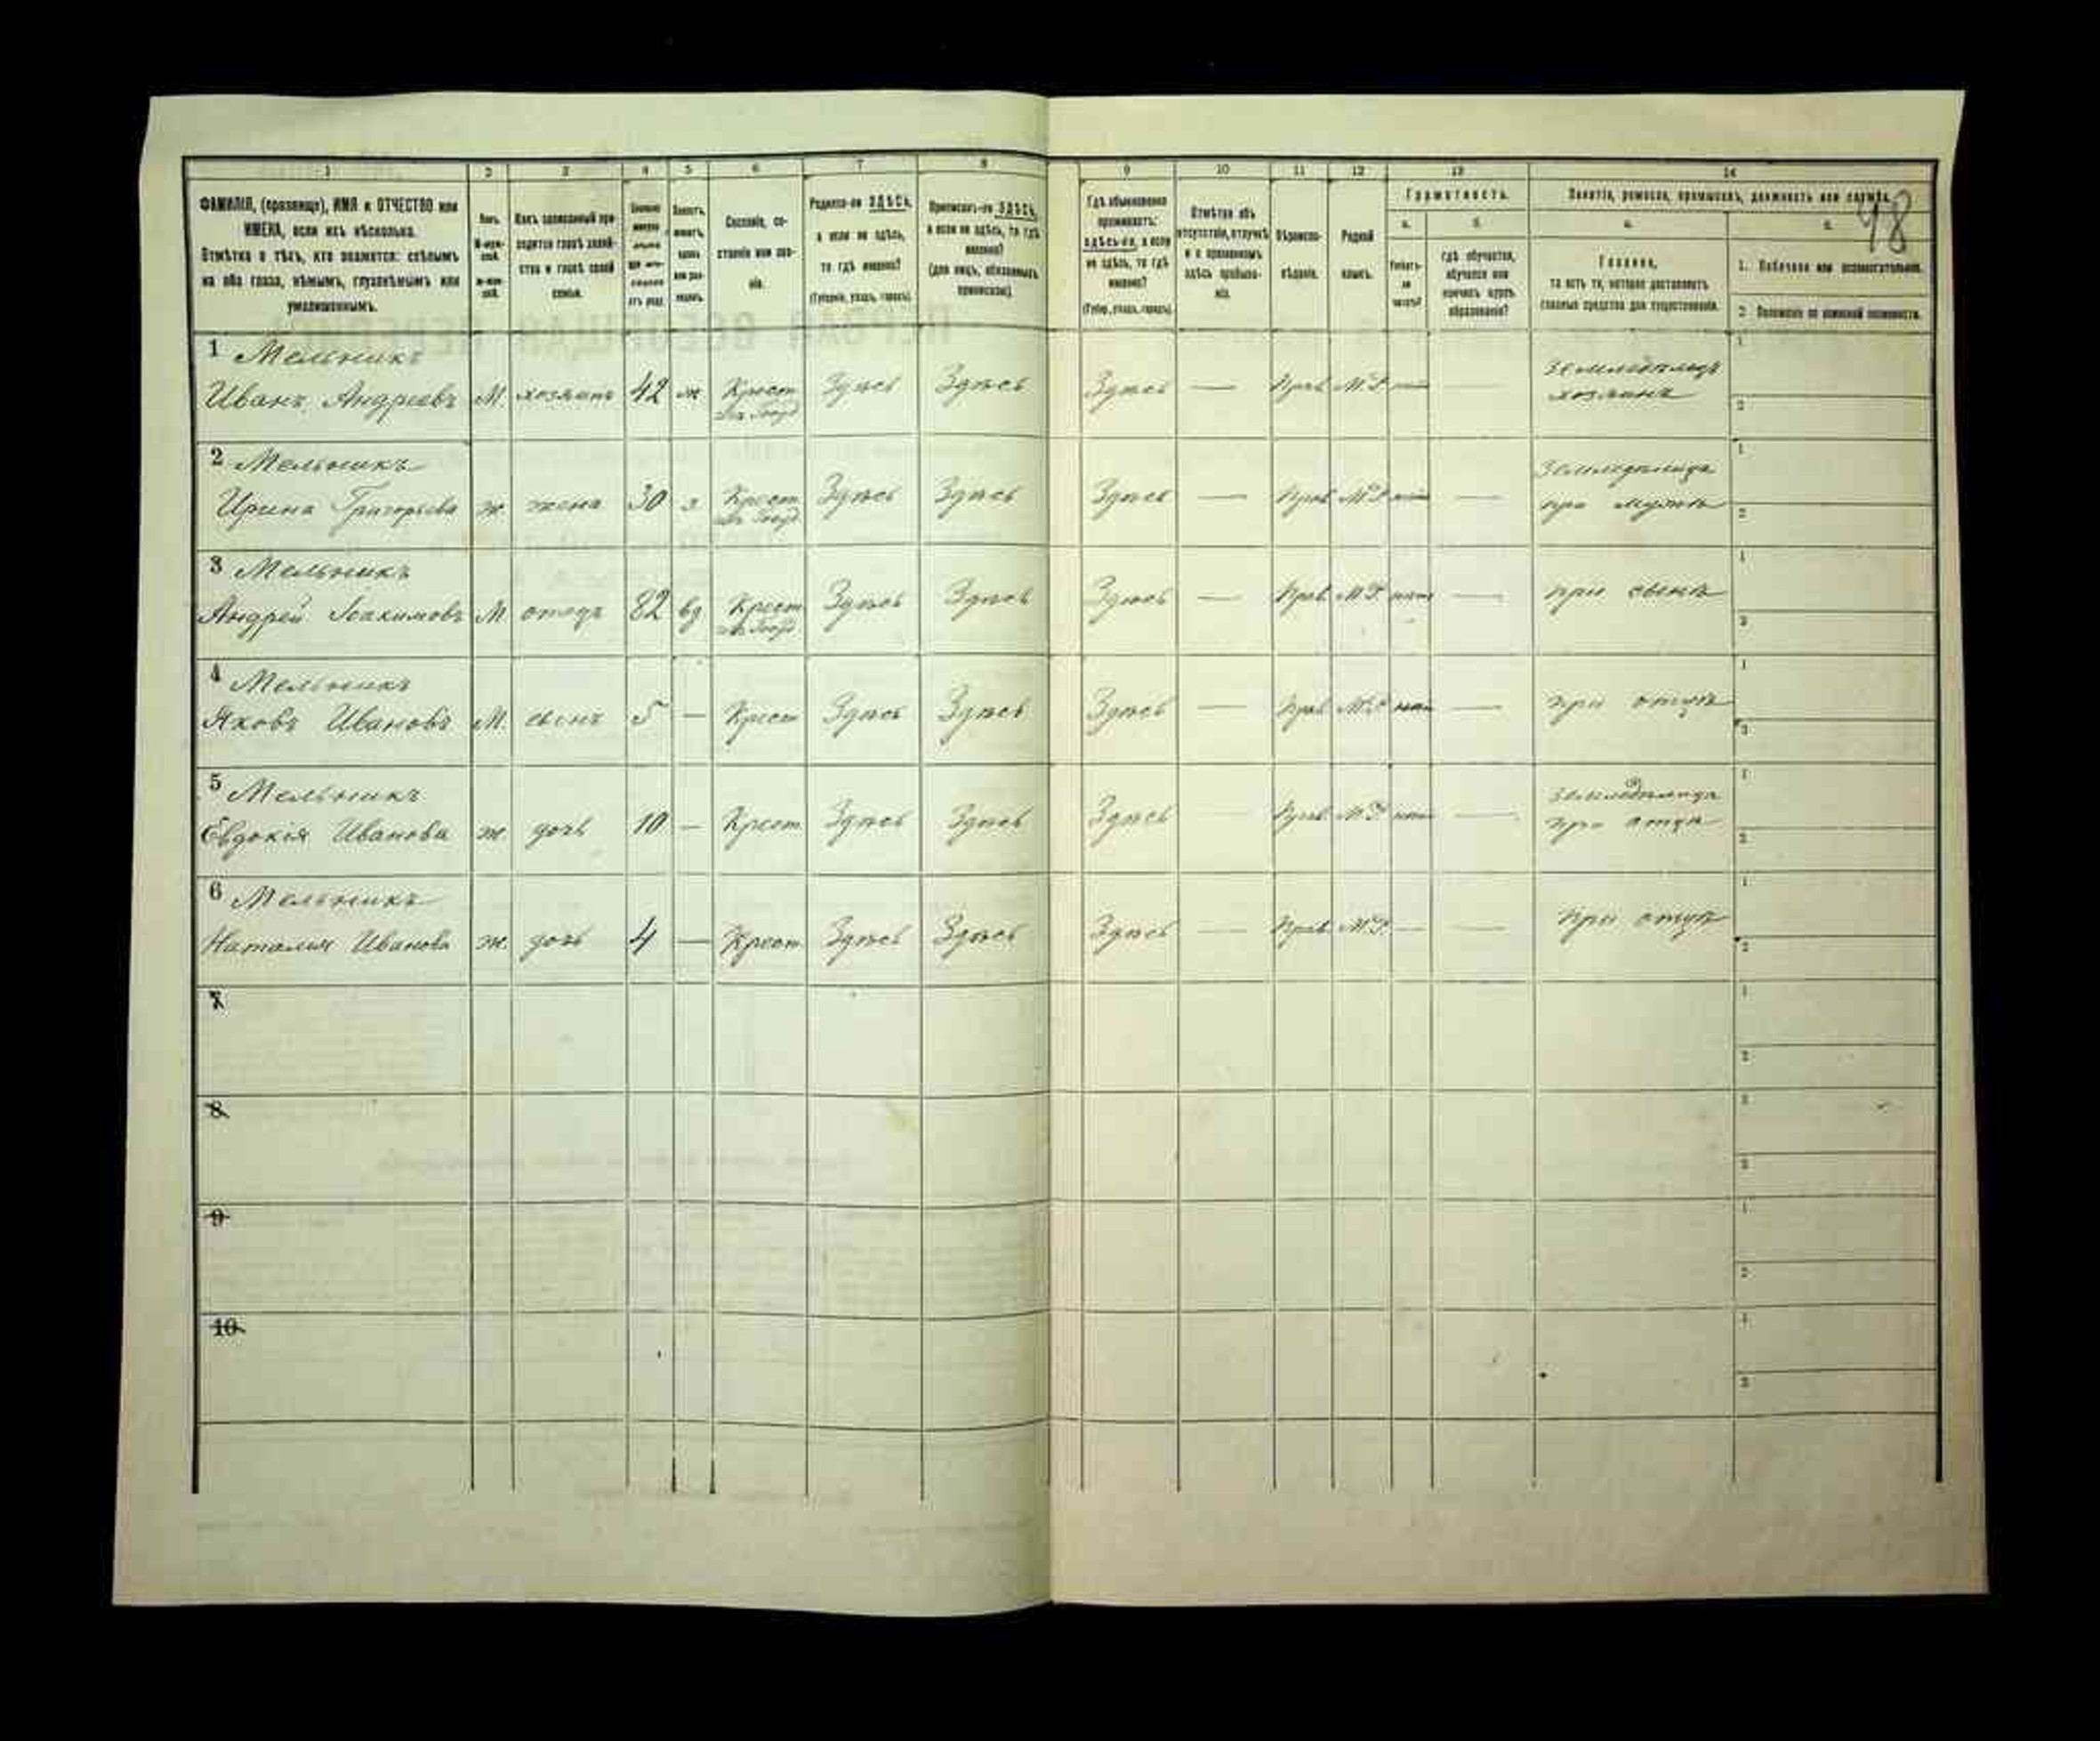 1 2 3 4 5 6 7 8 9 10 11 12 13 14
ФАМИЛІЯ, (прозвище), ИМЯ и ОТЧЕСТВО или
ИМЕНА, если ихъ нѣсколько.
Отмѣтка о тѣхъ, кто окажется: слѣпымъ
на оба глаза, нѣмымъ, глухонѣмымъ или
умалишеннымъ.
Полъ.
М-муж-
ской.
Ж-жен-
скій.
Какъ записанный при-
ходится главѣ хозяй-
ства и главѣ своей
семьи.
Сословіе, со-
стояніе или зва-
ніе.
Родился-ли ЗДѢСЬ,
а если не здѣсь,
то гдѣ именно?
(Губернія, уѣздъ, городъ).
Приписанъ-ли ЗДѢСЬ,
а если не здѣсь, то гдѣ
именно?
(для лицъ, обязанныхъ
припискою).
Гдѣ обыкновенно
проживаетъ:
здѣсь-ли, а если
не здѣсь, то гдѣ
именно?
(Губер., уѣздъ, городъ).
Отмѣтка объ
отсутствіи, отлучкѣ
и о временномъ
здѣсь пребыва-
ніи.
Вѣроиспо-
вѣданіе.
Родной
языкъ.
Грамотность.
а.
Умѣетъ-
ли
читать?
б.
гдѣ обучается,
обучался или
кончилъ курсъ
образованія?
Занятіе, ремесло, промыселъ, должность или служба.
48
а.
Главное,
то есть то, которое доставляетъ
главныя средства для существованія.
1. Побочное или вспомогательное.
2. Положеніе по воинской повинности.
1 Мельникъ
Иванъ Андреевъ М. хозяинъ 42 ж Крест. Здѣсь Здѣсь Здѣсь — Прав. М.Р. — Земледѣлецъ
хозяинъ
2 Мельникъ
Ирина Григорьева ж. жена 30 з Крест. Здѣсь Здѣсь Здѣсь — Прав. М.Р. нѣт — Земледѣлица
при мужѣ
3 Мельникъ
Андрей Іоакимовъ М. отецъ 82 вд Крест. Здѣсь Здѣсь Здѣсь — Прав. М.Р. нѣт — при сынѣ
4 Мельникъ
Яковъ Ивановъ М. сынъ 5 — Крест. Здѣсь Здѣсь Здѣсь — Прав. М.Р. нѣт — при отцѣ
5 Мельникъ
Евдокія Иванова ж. дочь 10 — Крест. Здѣсь Здѣсь Здѣсь — Прав. М.Р. нѣт — Земледѣлица
при отцѣ
6 Мельникъ
Наталия Иванова ж. дочь 4 — Крест. Здѣсь Здѣсь Здѣсь — Прав. М.Р. — — При отцѣ
7
8
9
10